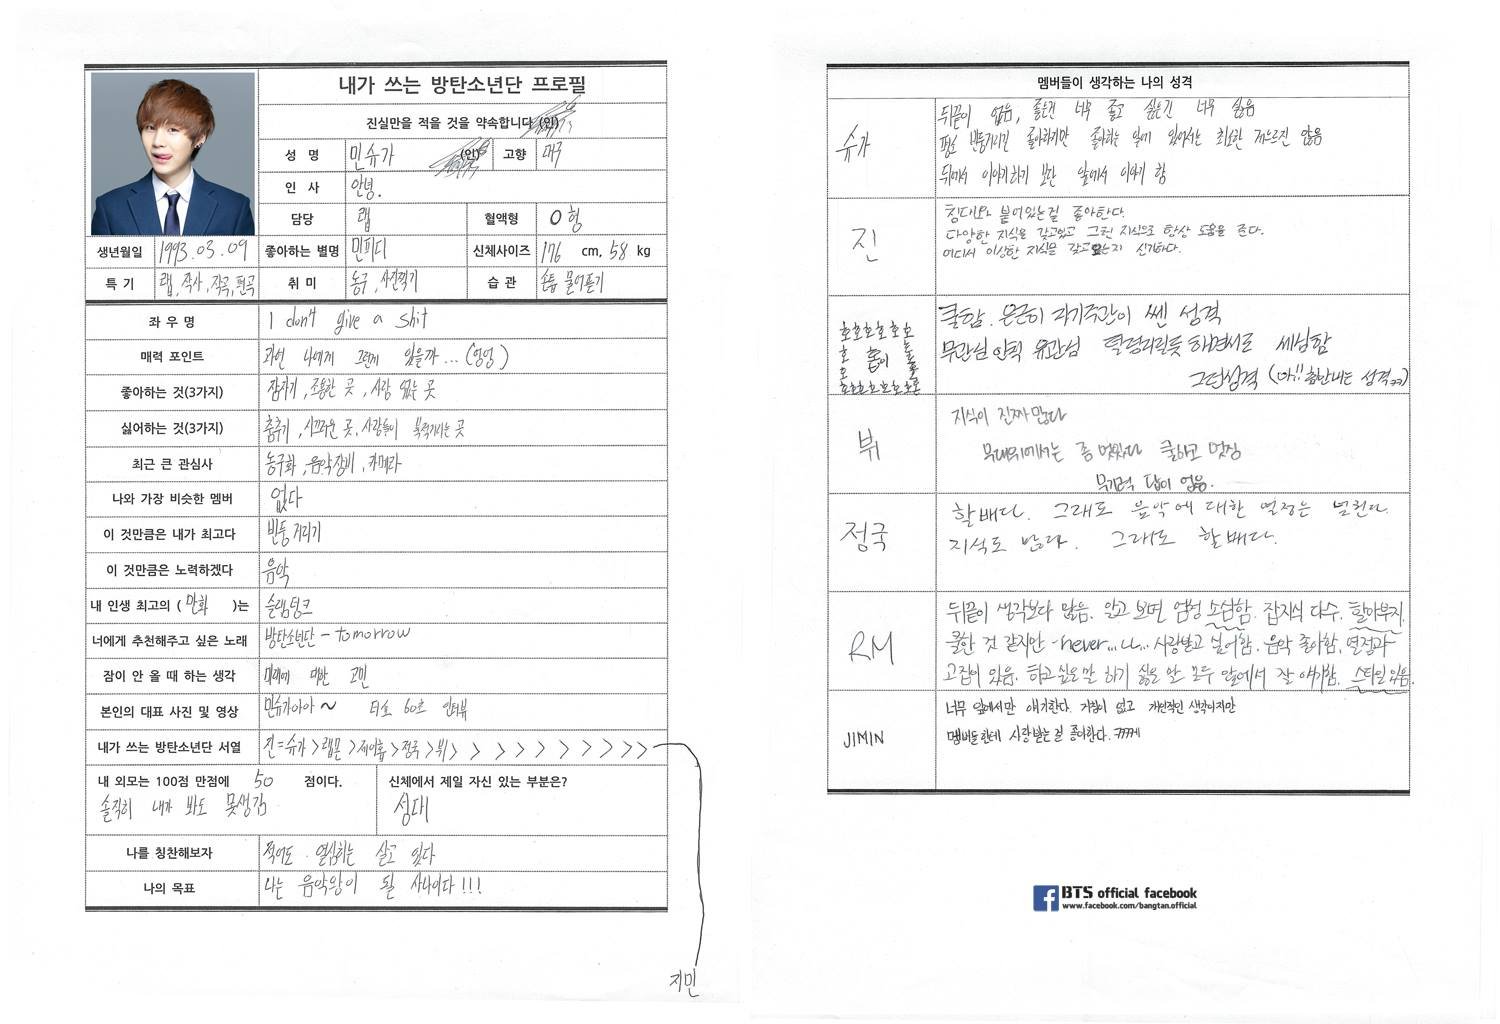 내가 쓰는 방탄소년단 프로필
진실만을 적을 것을 약속합니다 (인)
성 명 민슈가 (인) 고향 대구
인 사 안녕.
담당 랩 혈액형 O 형
생년월일 1993.03.09 좋아하는 별명 민피디 신체사이즈 176 cm, 58 kg
특 기 랩, 작사, 작곡, 편곡 취 미 농구, 사진찍기 습 관 손톱 물어뜯기
좌 우 명 I don't give a shit
매력 포인트 과연 나에게 그런게 있을까... (엉엉)
좋아하는 것(3가지) 잠자기, 조용한 곳, 사람 없는 곳
싫어하는 것(3가지) 춤추기, 시끄러운 곳, 사람들이 북적거리는 곳
최근 큰 관심사 농구화, 음악장비, 카메라
나와 가장 비슷한 멤버 없다
이 것만큼은 내가 최고다 빈둥거리기
이 것만큼은 노력하겠다 음악
내 인생 최고의 ( 만화 )는 슬램덩크
너에게 추천해주고 싶은 노래 방탄소년단 - tomorrow
잠이 안 올 때 하는 생각 미래에 대한 고민
본인의 대표 사진 및 영상 민슈가아아~ 60초 인터뷰
내가 쓰는 방탄소년단 서열 진=슈가>랩몬>제이홉>정국>뷔> > > > > > > > > >
지민
내 외모는 100점 만점에 50 점이다.
솔직히 내가 봐도 못생김
신체에서 제일 자신 있는 부분은?
성대
나를 칭찬해보자 적어도 열심히는 살고 있다
나의 목표 나는 음악왕이 될 사나이다!!!
멤버들이 생각하는 나의 성격
슈가
뒤끝이 없음, 좋은건 너무 좋고 싫은건 너무 싫음
평소 빈둥거리길 좋아하지만 좋아하는 일에 있어서는 최소한 게으르진 않음
뒤에서 이야기하기 보단 앞에서 이야기 함
진
침대와 붙어있는걸 좋아한다.
다양한 지식을 갖고있고 그런 지식으로 항상 도움을 준다.
어디서 이상한 지식을 갖고오는지 신기하다.
호호호호호호
호 홉이
호호호호호호
쿨함. 은근히 자기주관이 쎈 성격
무관심인척 유관심 덜렁거릴듯 하면서도 세심함
그런성격 (마!! 츤내는 성격ㅋㅋ)
뷔
지식이 진짜 많다
무대위에서는 좀 멋있다 쿨하고 멋짐
무기력 답이 없음.
정국
할배다. 그래도 음악에 대한 열정은 넘친다.
지식도 많다. 그래도 할배다.
RM
뒤끝이 생각보다 많음. 알고 보면 엄청 소심함. 잡지식 다수. 할아버지.
쿨한 것 같지만 -never... 사랑받고 싶어함. 음악 좋아함, 열정과
고집이 있음. 하고싶은 말 하기 싫은 말 모두 앞에서 잘 얘기함. 스타일 있음.
JIMIN
너무 앞에서만 얘기한다. 거침이 없고 개인적인 생각이지만
멤버들한테 사랑받는걸 좋아한다. ㅋㅋㅋ
BTS official facebook
www.facebook.com/bangtan.official